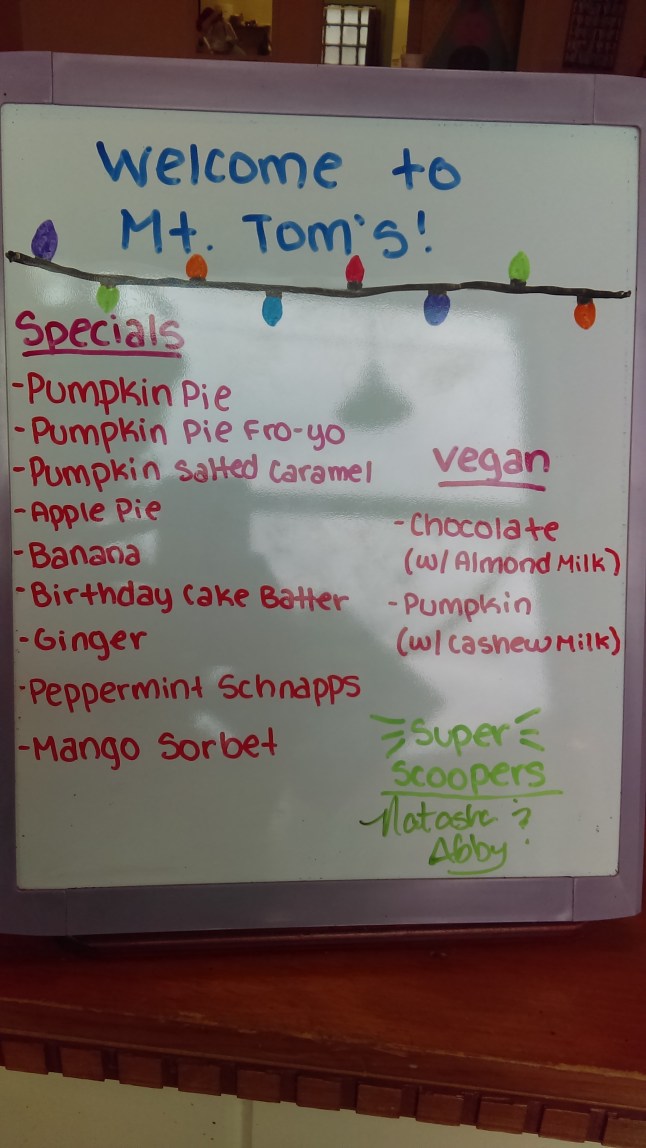 Welcome to
Mt. Tom's!
Specials
-Pumpkin Pie
-Pumpkin Pie Fro-yo
-Pumpkin Salted Caramel
-Apple Pie
-Banana
-Birthday Cake Batter
-Ginger
-Peppermint Schnapps
-Mango Sorbet
vegan
-Chocolate
(w/ Almond Milk)
-Pumpkin
(w/ Cashew Milk)
Super
Scoopers
Natasha &
Abby